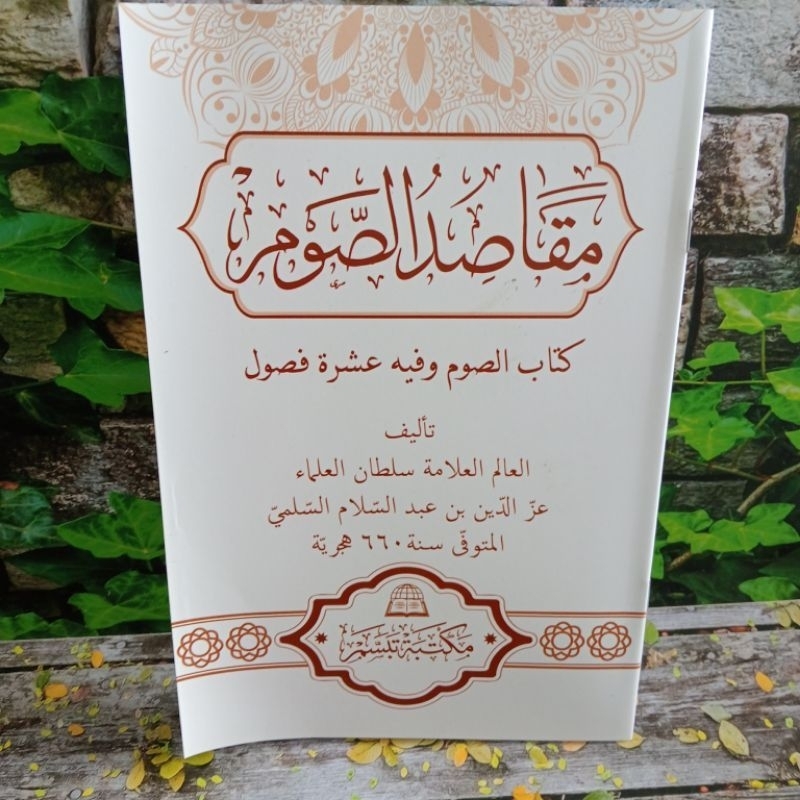 مَقَاصِدُ الصَّوْمِ
كتاب الصوم وفيه عشرة فصول
تأليف
العالم العلامة سلطان العلماء
عزّ الدّين بن عبد السّلام السّلميّ
المتوفّى سنة ٦٦٠ هجريّة
مكتبة تبسّم